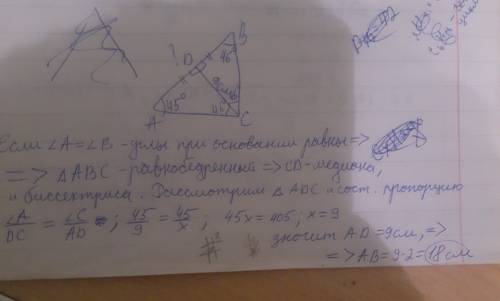 B
D
45°
9см
45°
45°
A
C
Если ∠A=∠B - углы при основании равны =>
=> △ABC - равнобедренный => CD - медиана,
и биссектриса. Рассмотрим △ADC и сост. пропорцию
∠A/DC = ∠C/AD ; 45/9 = 45/x ; 45x = 405; x = 9
значит AD = 9см, =>
=> AB = 9·2 = 18см